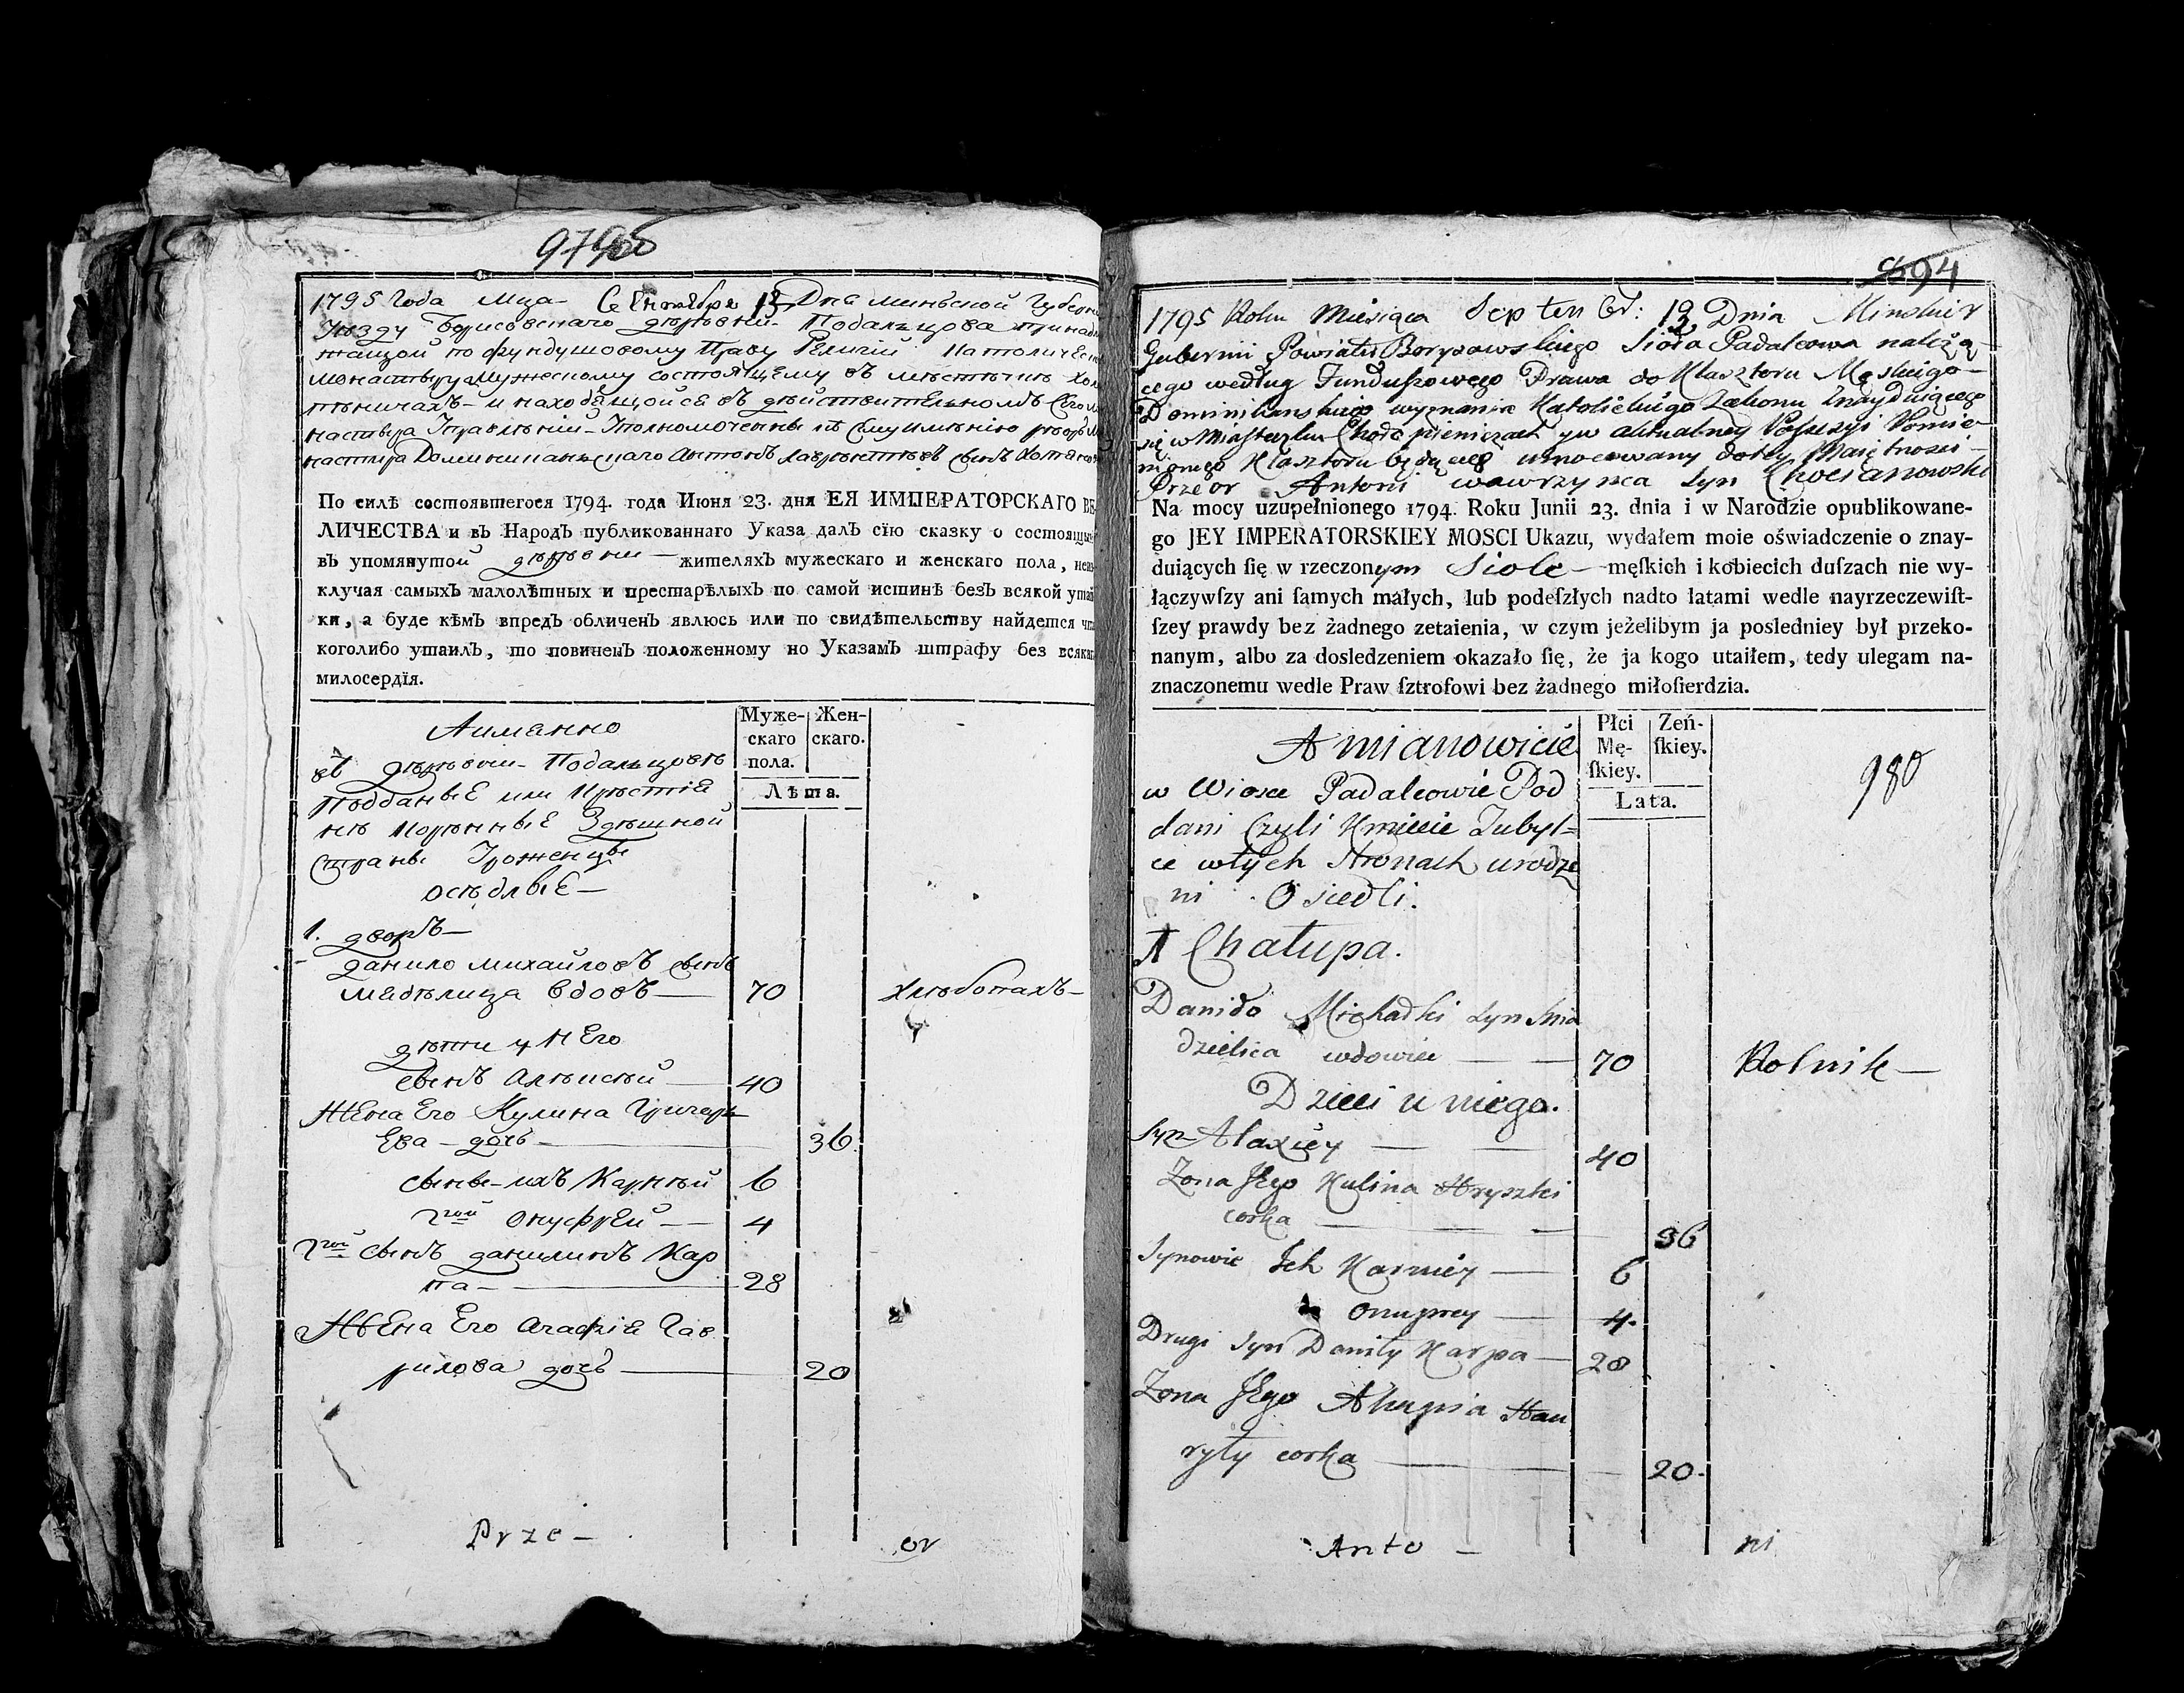 1795 Года Мца Сентября 13 Дня Минской Губерн
Уѣзду Борисовскаго деревни Подальцова принадл
жащой по фундушовому Праву Религіи Католичес
монастыру Мужескому состоящему въ мѣстечкѣ Хол
пѣничахъ и находящойсе въ действительномъ Сего м
настыра Управленіи Уполномоченны къ сему имѣнію
настыра Доминиканскаго Антонъ Лаврентьевъ сынъ
По силѣ состоявшегося 1794. года Июня 23. дня ЕЯ ИМПЕРАТОРСКАГО ВЕ-
ЛИЧЕСТВА и въ Народъ публикованнаго Указа далъ сїю сказку о состоящи
въ упомянутой деревни жителяхъ мужескаго и женскаго пола, неи
ключая самыхъ малолѣтныхъ и престарѣлыхъ по самой истинѣ безъ всякой утай
ки, а буде кѣмъ впредъ обличенъ явлюсь или по свидѣтельству найдется что
коголибо утаилъ, то повиненъ положенному по Указамъ штрафу без всякаг
милосердїя.
Аимянно
Муже-
скаго
пола.
Жен-
скаго.
Лѣта.
въ деревни Подальцовѣ
Подданые или Крестія
не Коренные Здѣшной
Страны Уроженцы
оседлые
1. дворъ
Данило Михайловъ сынъ
Мядѣлица вдовъ 70 Хлѣбопахъ
дѣти у него
сынъ Алексѣй 40
Жена Его Кулина Григорь
Ева дочь 36
сыны ихъ Карнѣй 6
2гой Онуфрей 4
2гой сынъ данилинъ Кар
па 28
Жена Его Агафія Гав
рилова дочь 20
Prze or
94
1795 Roku Miesiąca Septembr: 13 Dnia Minskiey
Gubernii Powiatu Borysowskiego Sioła Padalcowa należą
cego według Funduszowego Prawa do Klasztoru Męskiego
Dominikanskiego wyznania Katolickiego Zakonu Znayduiącego
się w Miasteczku Chołopieniczach y w aktualney Possessyi Pomie
nionego Klasztoru będącego umocowany do tey Maiętnosci
Przeor Antoni Wawrzynca Syn Chocianowski
Na mocy uzupełnionego 1794. Roku Junii 23. dnia i w Narodzie opublikowane-
go JEY IMPERATORSKIEY MOSCI Ukazu, wydałem moie oświadczenie o znay-
duiących ſię w rzeczonym Siole męſkich i kobiecich duſzach nie wy-
łączywſzy ani ſamych małych, lub podeſzłych nadto latami wedle nayrzeczewiſt-
ſzey prawdy bez żadnego zetaienia, w czym jeżelibym ja posledniey był przeko-
nanym, albo za dosledzeniem okazało ſię, że ja kogo utaiłem, tedy ulegam na-
znaczonemu wedle Praw ſztrofowi bez żadnego miłoſierdzia.
A mianowicie
Płci
Mę-
ſkiey.
Zeń-
ſkiey.
Lata.
980
w Wiosce Padalcowie Pod
dani Czyli Kmiecie Tubyl=
ce w tych Stronach urodze
ni Osiedli.
1 Chałupa.
Daniło Michałki Syn Mia
dzielica wdowiec 70 Rolnik
Dzieci u niego.
Syn Alaxiey 40
Zona Jego Kulina Hryszki
corka 36
Synowie Ich Karniey 6
Onuprey 4.
Drugi Syn Daniły Karpa 28
Zona Jego Ahapia Hau
ryły corka 20.
Anto ni